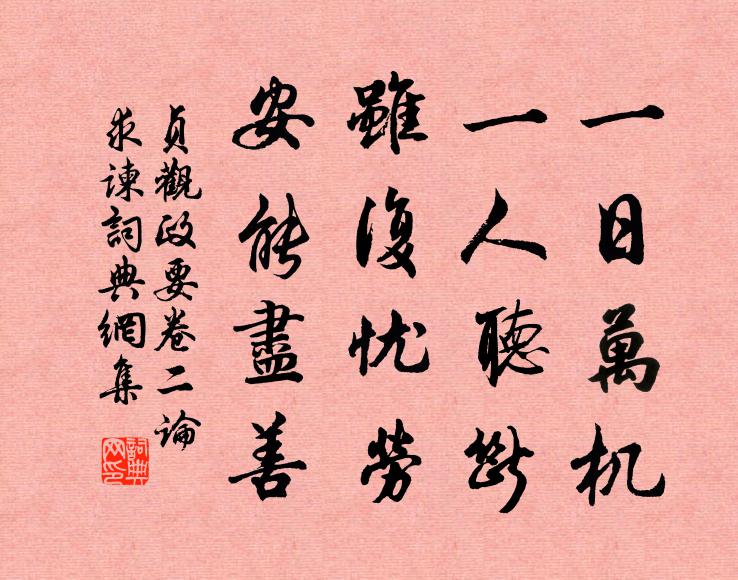 一日萬机
一人聽斷
雖復忧勞
安能盡善
貞觀政要卷二論
求諫詞典網集
詞典
网印